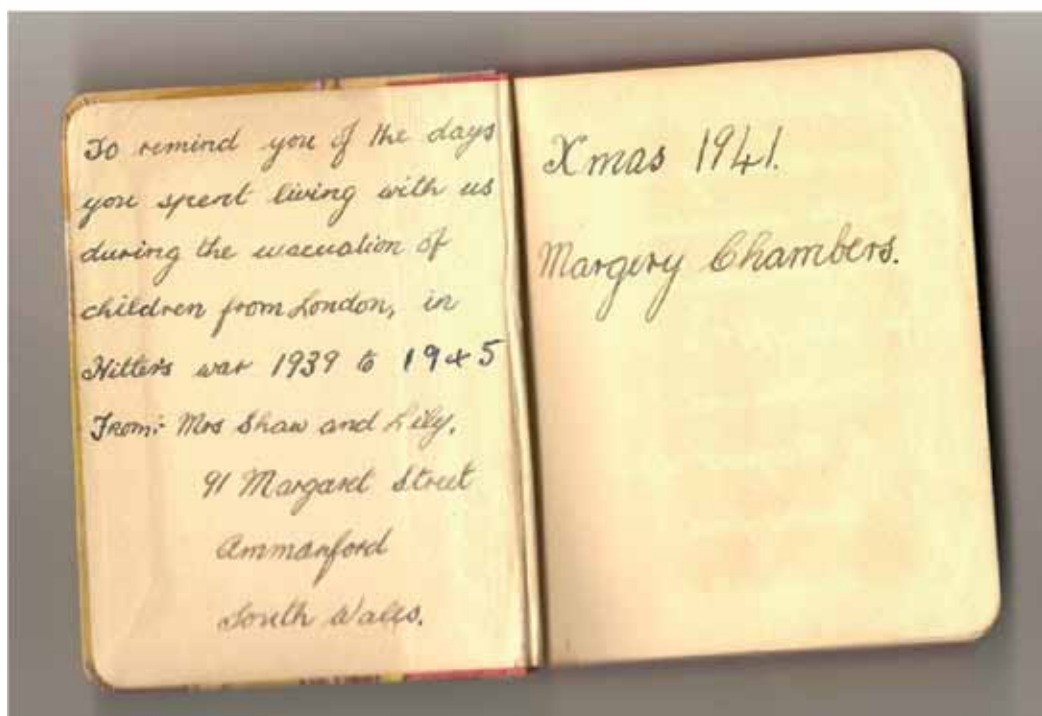 To remind you of the days
you spent living with us
during the evacuation of
children from London, in
Hitler's war 1939 to 1945
From:- Mrs Shaw and Lily.
91 Margaret Street
Ammanford
South Wales.
Xmas 1941.
Margery Chambers.